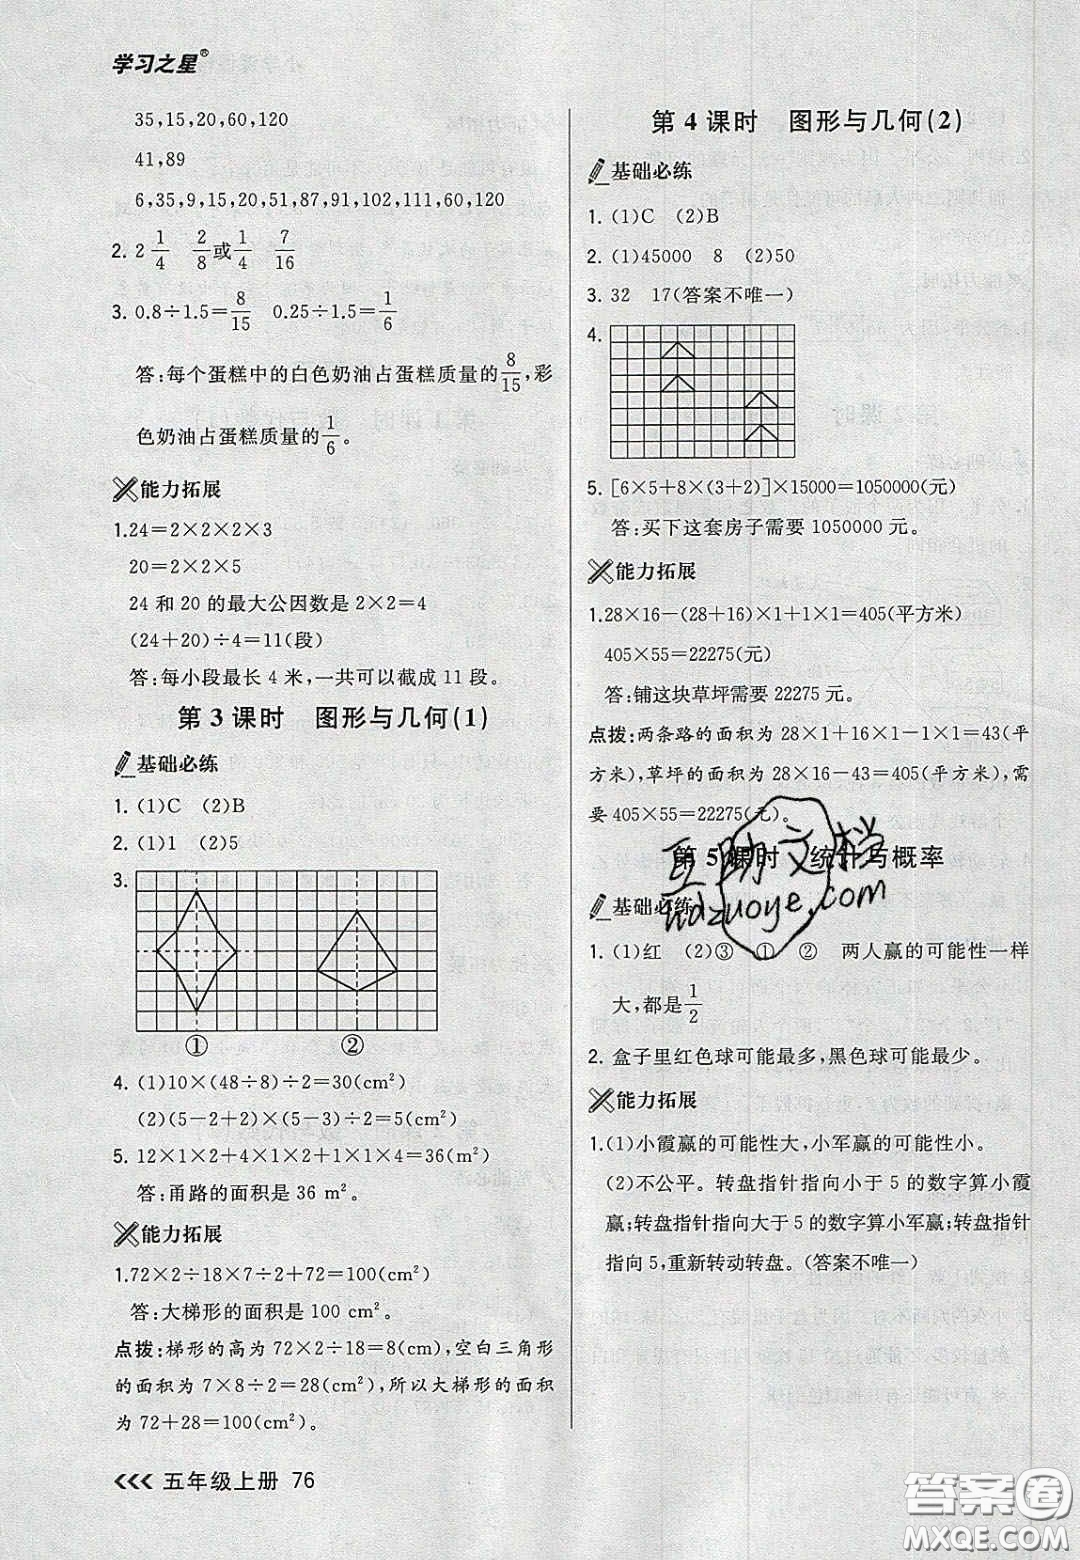 学习之星®
35,15,20,60,120
41,89
6,35,9,15,20,51,87,91,102,111,60,120
2. 2 1/4 2/8或1/4 7/16
3. 0.8÷1.5=8/15 0.25÷1.5=1/6
答:每个蛋糕中的白色奶油占蛋糕质量的8/15,彩
色奶油占蛋糕质量的1/6。
能力拓展
1.24=2×2×2×3
20=2×2×5
24 和 20 的最大公因数是 2×2=4
(24+20)÷4=11(段)
答:每小段最长 4 米,一共可以截成 11 段。
第 3 课时 图形与几何(1)
基础必练
1. (1)C (2)B
2. (1)1 (2)5
3.
① ②
4. (1)10×(48÷8)÷2=30(cm²)
(2)(5-2+2)×(5-3)÷2=5(cm²)
5. 12×1×2+12×1-1×1×4=36(m²)
答:甬路的面积是 36 m²。
能力拓展
1.72×2÷18×7÷2+72=100(cm²)
答:大梯形的面积是 100 cm²。
点拨:梯形的高为 72×2÷18=8(cm),空白三角形
的面积为 7×8÷2=28(cm²),所以大梯形的面积
为 72+28=100(cm²)。
五年级上册 76
第 4 课时 图形与几何(2)
基础必练
1. (1)C (2)B
2. (1)45000 8 (2)50
3. 32 17(答案不唯一)
4.
5. [6×5+8×(3+2)]×15000=1050000(元)
答:买下这套房子需要 1050000 元。
能力拓展
1.28×16-(28+16)×1+1×1=405(平方米)
405×55=22275(元)
答:铺这块草坪需要 22275 元。
点拨:两条路的面积为 28×1+16×1-1×1=43(平
方米),草坪的面积为 28×16-43=405(平方米),需
要 405×55=22275(元)。
第 5 课时 统计与概率
互助文档
hdzuoye.com
基础必练
1. (1)红 (2)③ ① ② 两人赢的可能性一样
大,都是1/2
2. 盒子里红色球可能最多,黑色球可能最少。
能力拓展
1.(1)小霞赢的可能性大,小军赢的可能性小。
(2)不公平。转盘指针指向小于 5 的数字算小霞
赢;转盘指针指向大于 5 的数字算小军赢;转盘指针
指向 5,重新转动转盘。(答案不唯一)
答案圈
MXQE.COM